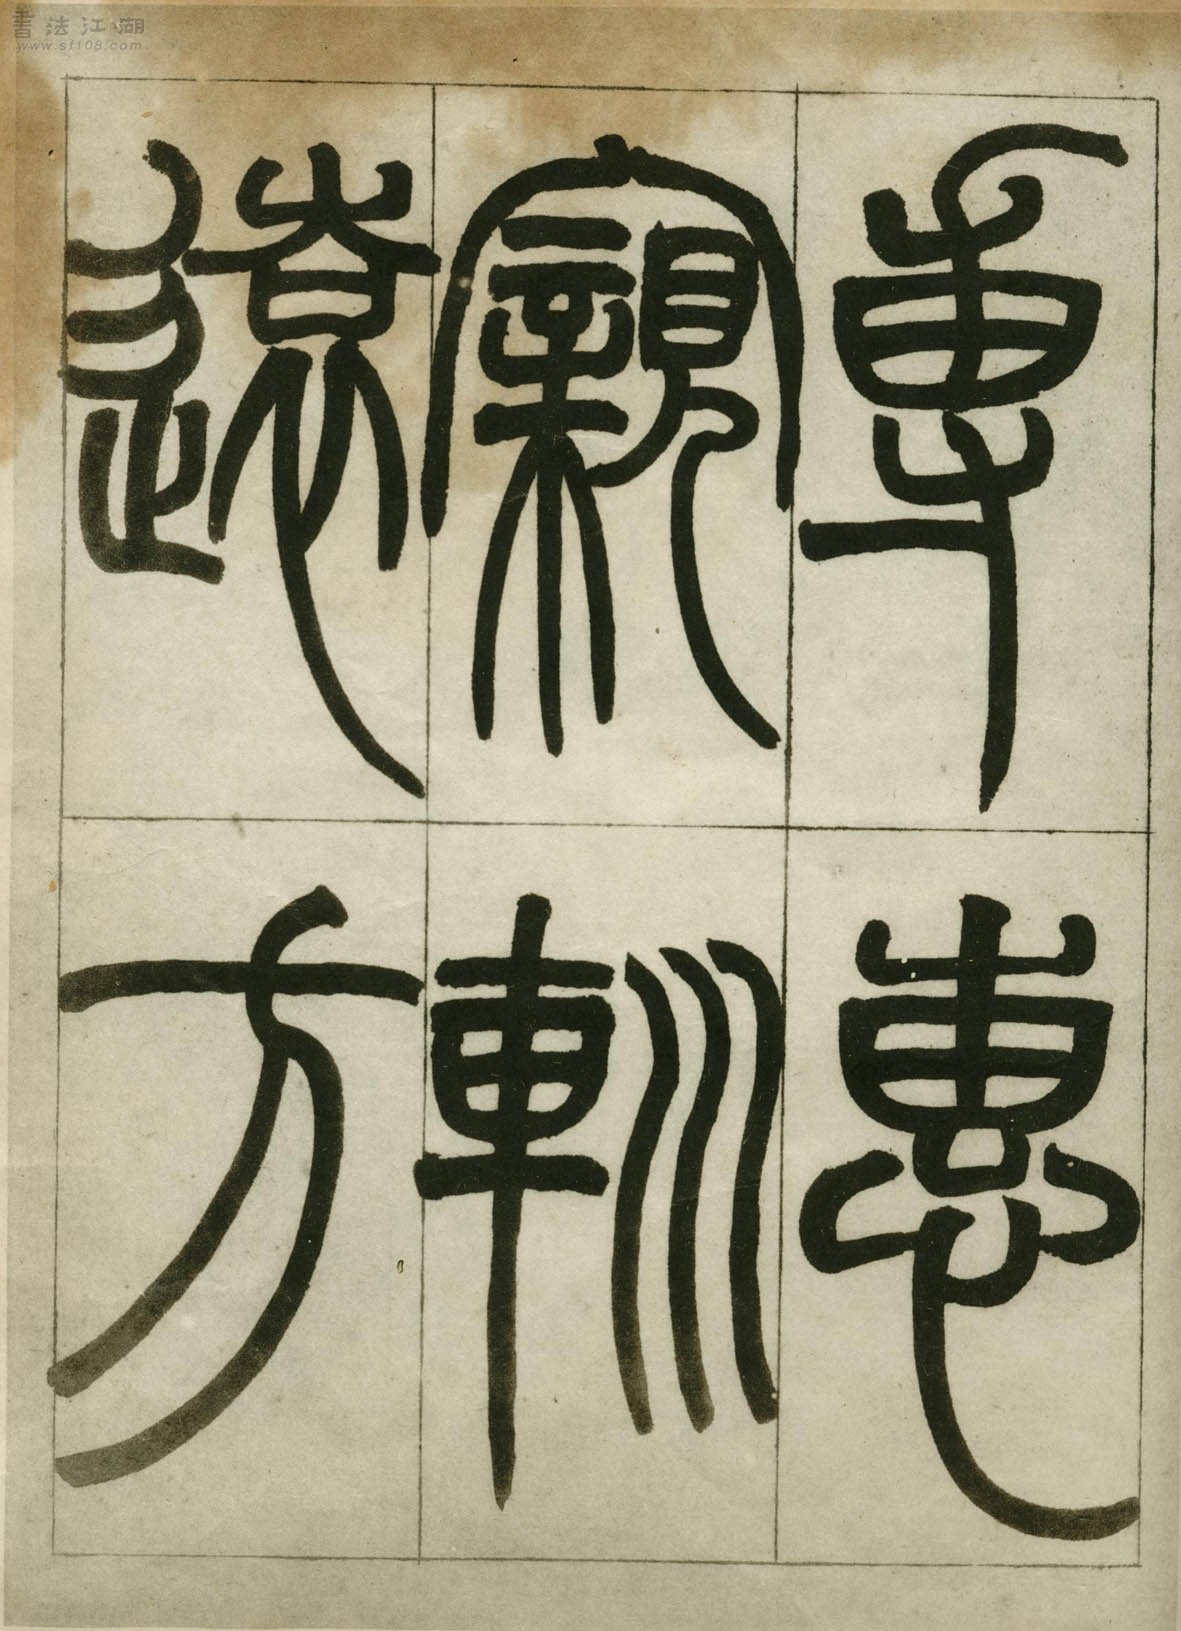 書法江湖
www.sf108.com
專惠
寴䡅
遠方